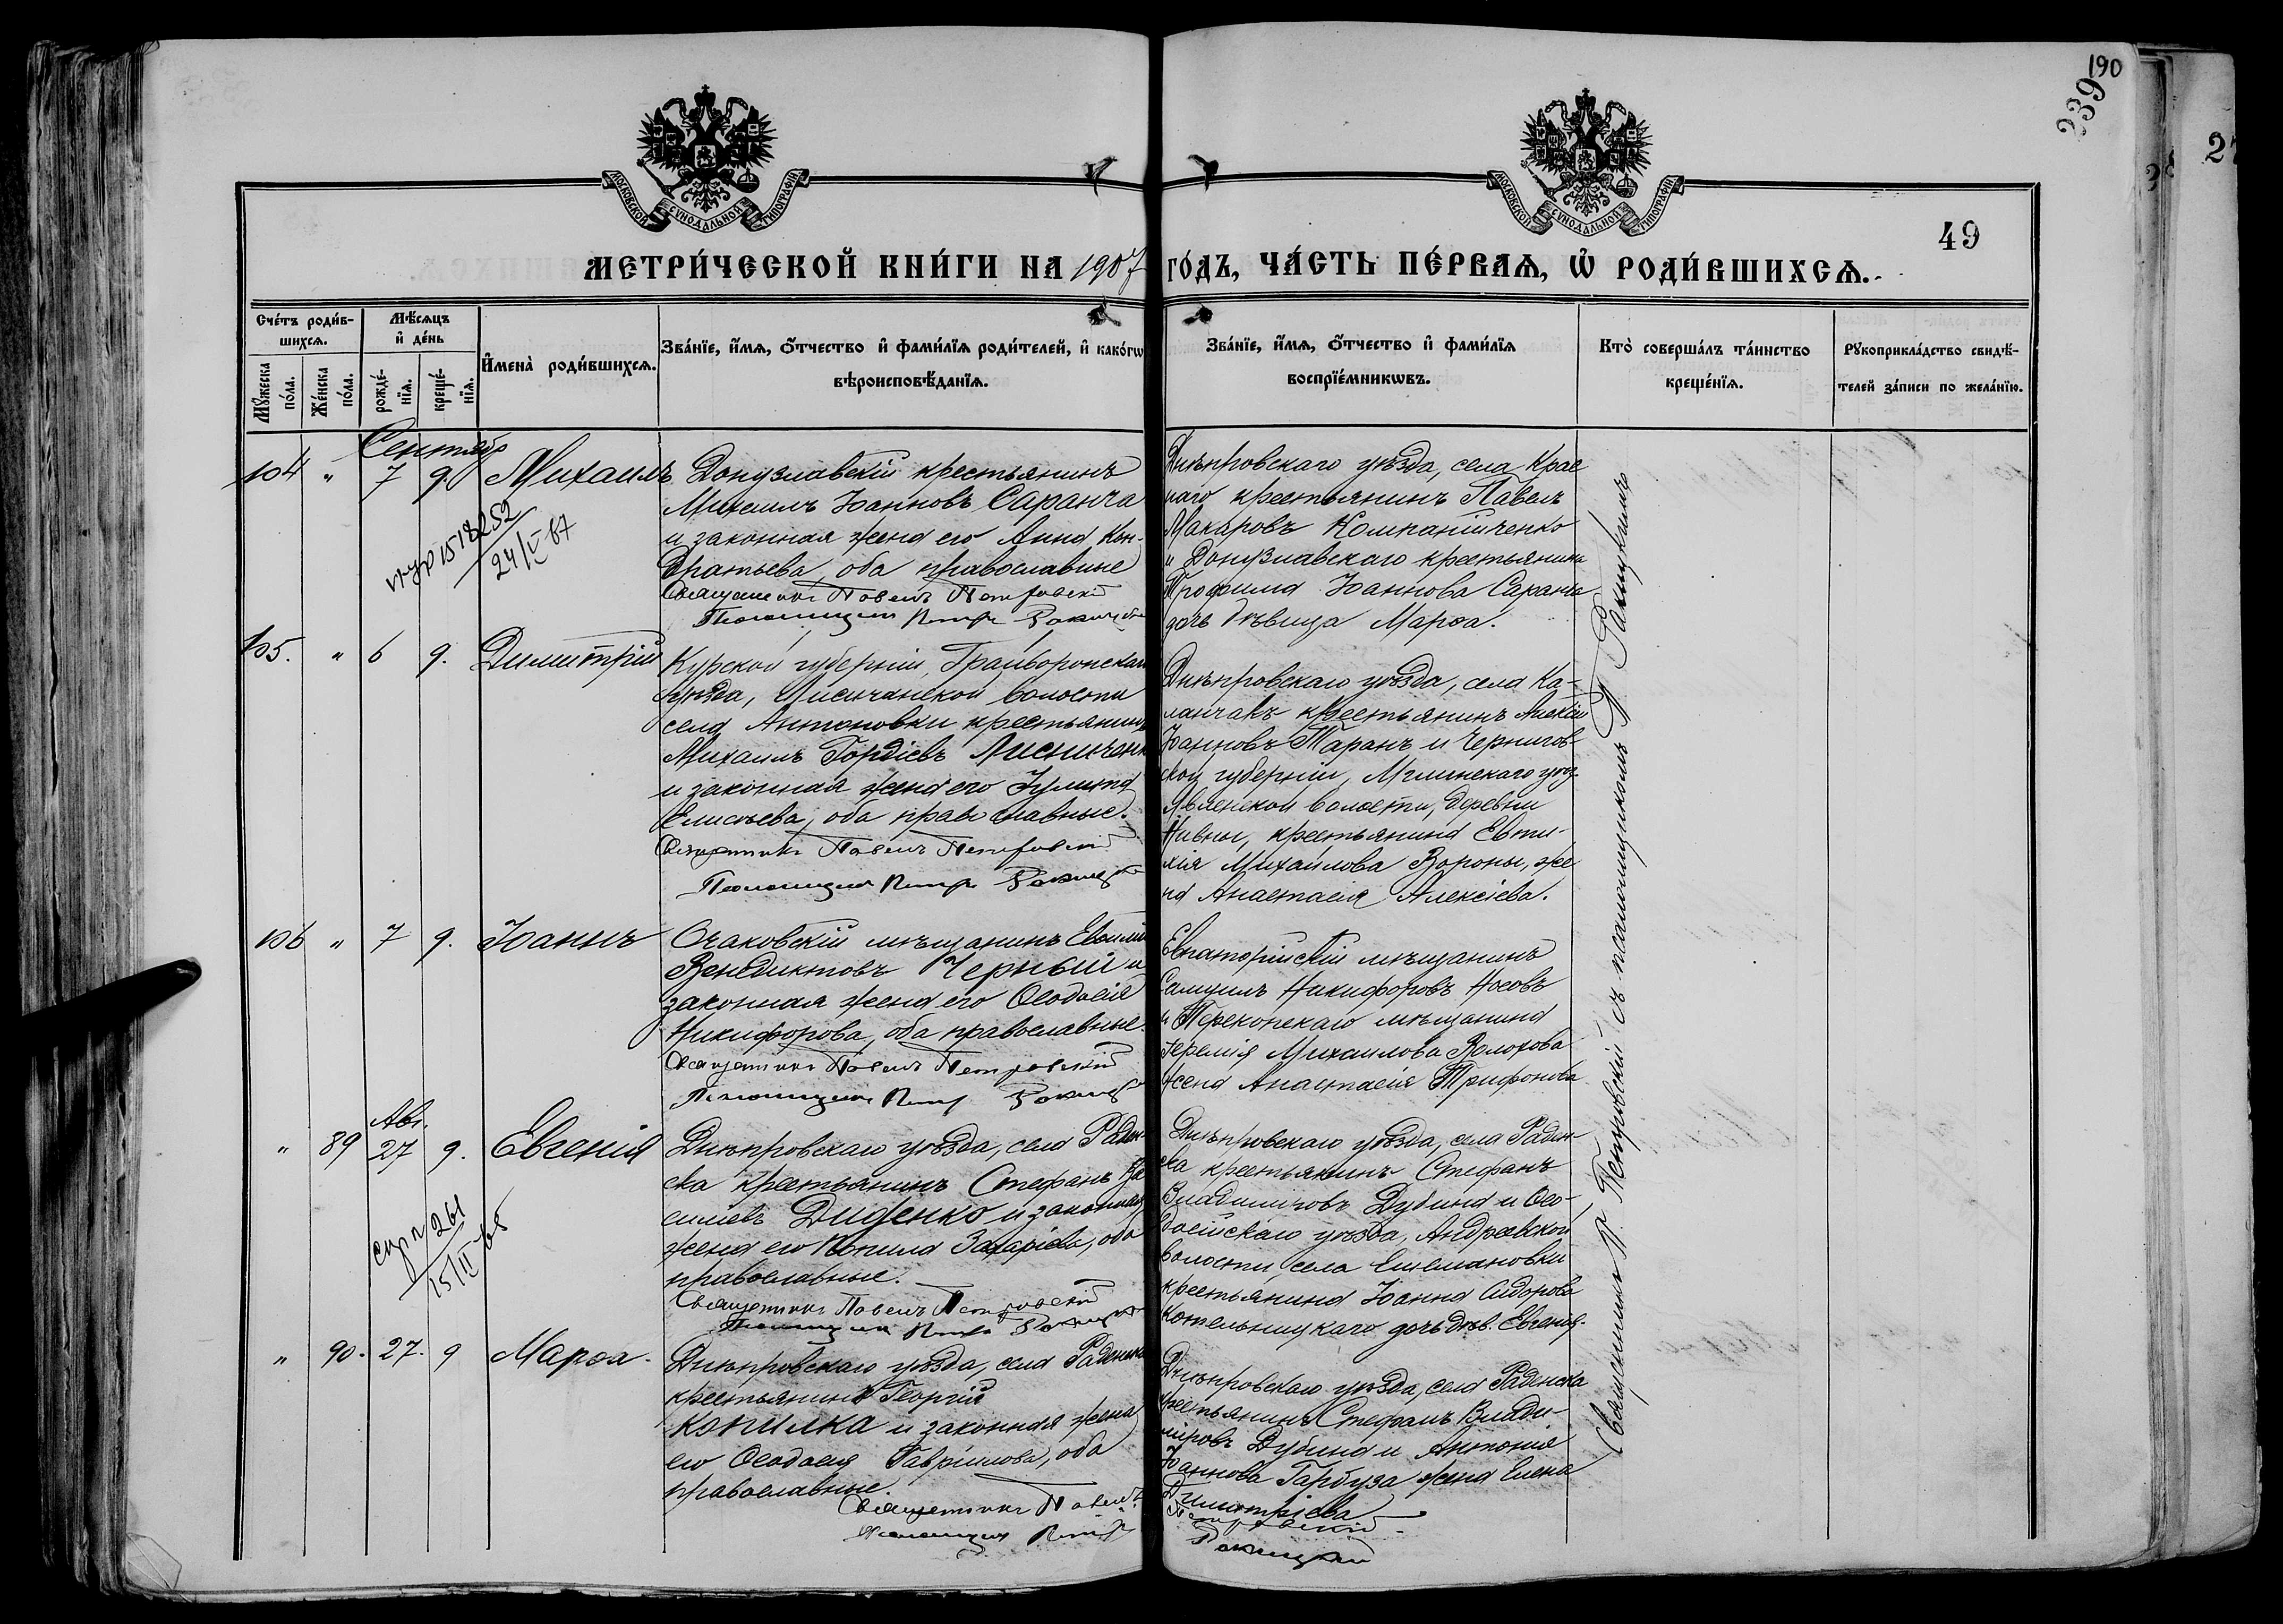 190
239
49
МОСКОВСКОЙ СѴНОДАЛЬНОЙ ТИПОГРАФІИ
МОСКОВСКОЙ СѴНОДАЛЬНОЙ ТИПОГРАФІИ
МЕТРИ́ЧЕСКОЙ КНИ́ГИ НА 1907 ГО́ДЪ, ЧА́СТЬ ПЕ́РВАѦ, Ѡ҆ РОДИ́ВШИХСѦ.
Сче́тъ роди́в-
шихсѧ.
Мꙋ́жеска по́ла.
Же́нска по́ла.
Мѣ́сѧцъ
и҆ де́нь
рожде́-
нїѧ.
креще́-
нїѧ.
И҆мена̀ роди́вшихсѧ.
Зва́нїе, и҆́мѧ, ѻ҆́тчество и҆ фами́лїѧ роди́телей, и҆ како́гѡ
вѣроисповѣ́данїѧ.
Зва́нїе, и҆́мѧ, ѻ҆́тчество и҆ фами́лїѧ
воспрїе́мникѡвъ.
Кто̀ соверша́лъ та́инство
креще́нїѧ.
Рꙋкоприкла́дство свидѣ́-
телей за́писи по жела́нїю.
Сентябр
104 " 7 9. Михаилъ
Донузлавскій крестьянинъ
Михаилъ Іоанновъ Саранча
и законная жена его Анна Кон-
дратьева, оба православные
Священникъ Павелъ Петровскій
Псаломщикъ Петръ
15 18252
24/V 87
Днѣпровскаго уѣзда, села Крас
наго крестьянинъ Павелъ
Макаровъ Компанійченко
и Донузлавскаго крестьянина
Трофима Іоаннова Саранча
дочь дѣвица Марѳа.
105. " 6 9. Димитрій
Курской губерніи, Грайворонскаго
уѣзда, Лисичанской волости
села Антоновки крестьянинъ
Михаилъ Гордіевъ Лисиченк
и законная жена его Іулита
Елисѣева, оба православные.
Священникъ Павелъ Петровскій
Псаломщикъ Петръ
Днѣпровскаго уѣзда, села Ка-
ланчакъ крестьянинъ Алексій
Іоанновъ Таранъ и Чернигов-
ской губерніи, Мглинскаго уѣз.
волости, деревни
Нивны, крестьянина Евти-
хія Михаилова Вороны, же
на Анастасія Алексіева.
106 " 7 9. Іоаннъ
Очаковскій мѣщанинъ
Венедиктовъ Черный и
законная жена его Ѳеодосія
Никифорова, оба православные.
Священникъ Павелъ Петровскій
Псаломщикъ Петръ
Евпаторійскій мѣщанинъ
Самуилъ Никифоровъ Носовъ
и Перекопскаго мѣщанина
Іеремія Михаилова Волохова
жена Анастасія Трифонова
Авг.
" 89 27 9. Евгенія
Днѣпровскаго уѣзда, села Раден-
ска крестьянинъ Стефанъ Ва
силіевъ Диденко и законная
жена его Захаріева, оба
православные.
Священникъ Павелъ Петровскій
Псаломщикъ Петръ
261
15/II 68
Днѣпровскаго уѣзда, села Раден-
ска крестьянинъ Стефанъ
Владиміровъ Дубина и Ѳео-
досійскаго уѣзда, Андреевской
волости, села Ешемановки
крестьянина Іоанна Сидорова
Котельницкаго дочь дѣв. Евгенія.
" 90. 27. 9 Марѳа.
Днѣпровскаго уѣзда, села Раденска
крестьянинъ Георгій
Копилка и законная жена
его Ѳеодосія Гавріилова, оба
православные.
Священникъ Павелъ
Псаломщикъ Петръ
Днѣпровскаго уѣзда, села Раденска
крестьянинъ Стефанъ Влади-
міровъ Дубина и Антонія
Іоаннова Гарбуза жена Елена
Димитріева
Петровскій
Ракицкій
Священникъ П. Петровскій съ псаломщикомъ П. Ракицкимъ